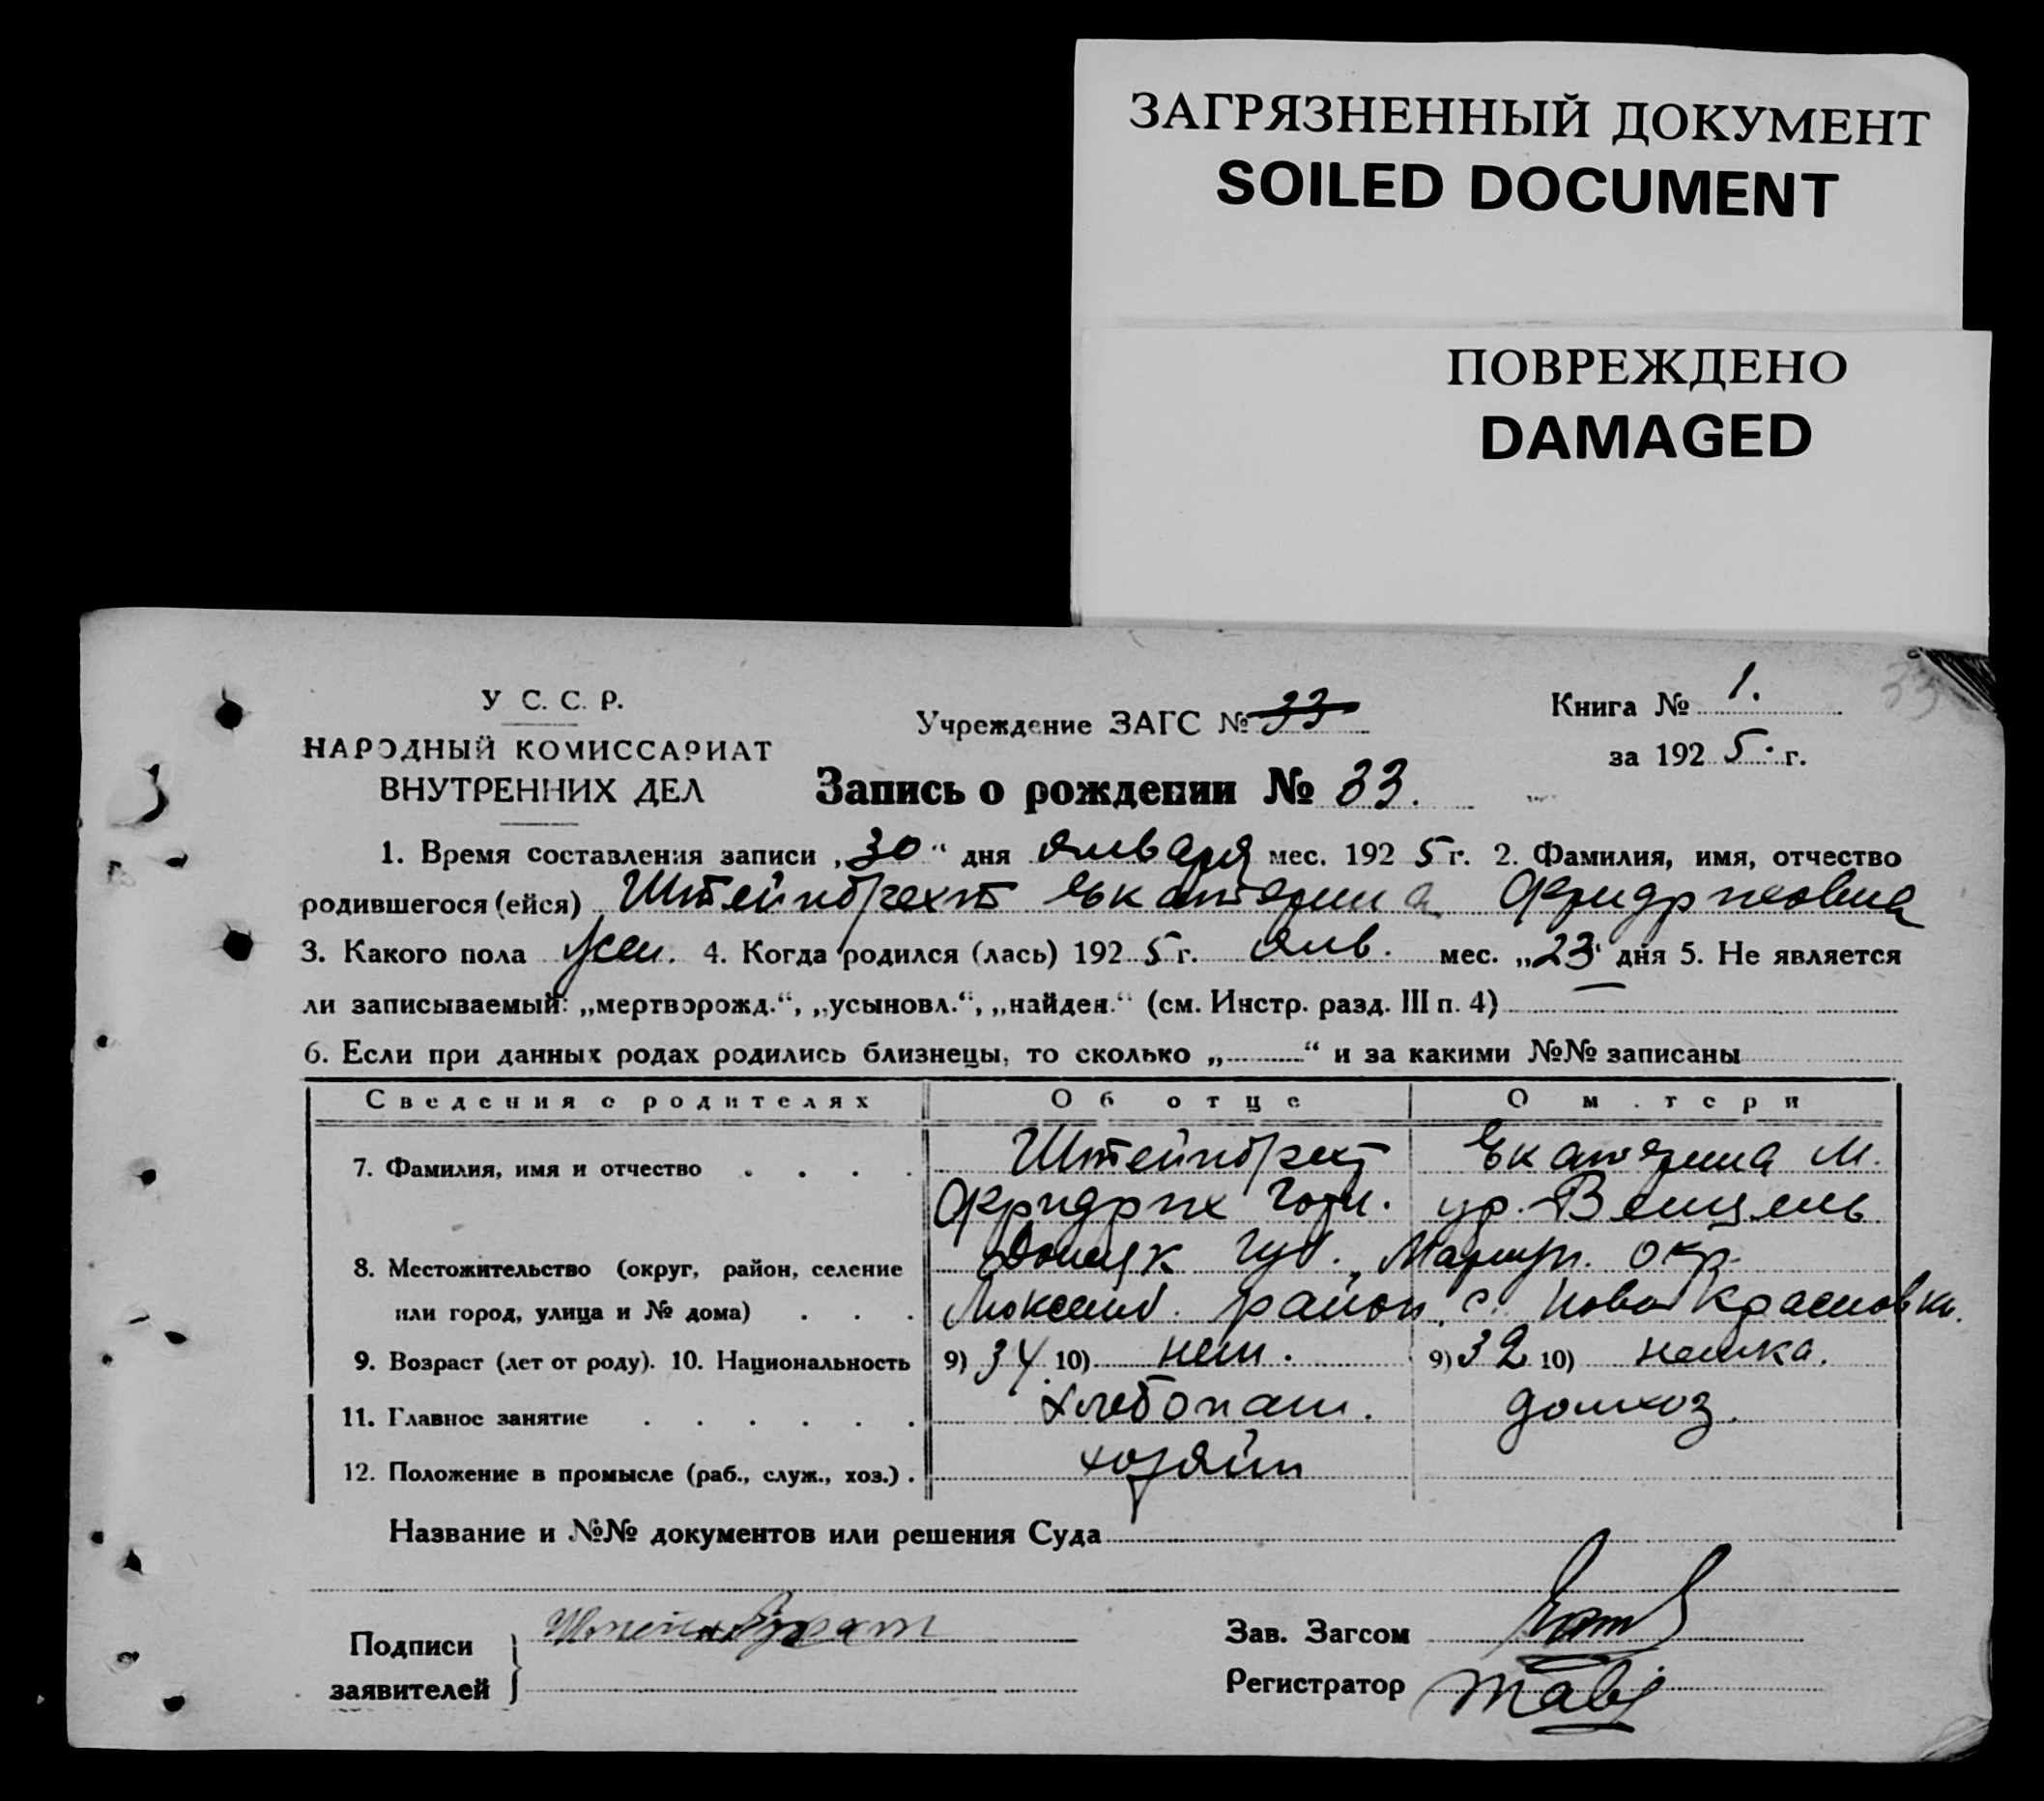 ЗАГРЯЗНЕННЫЙ ДОКУМЕНТ
SOILED DOCUMENT
ПОВРЕЖДЕНО
DAMAGED
У С. С. Р.
НАРОДНЫЙ КОМИССАРИАТ
ВНУТРЕННИХ ДЕЛ
Учреждение ЗАГС № 33
Книга № 1.
за 1925 г.
33
Запись о рождении № 33.
1. Время составления записи „30“ дня января мес. 1925 г. 2. Фамилия, имя, отчество
родившегося (ейся) Штейнбрехт Екатерина Фридриховна
3. Какого пола жен. 4. Когда родился (лась) 1925 г. янв. мес. „23“ дня 5. Не является
ли записываемый: „мертворожд.“, „усыновл.“, „найден.“ (см. Инстр. разд. III п. 4) —
6. Если при данных родах родились близнецы, то сколько „ “ и за какими №№ записаны
Сведения о родителях Об отце О матери
7. Фамилия, имя и отчество Штейнбрехт Екатерина М.
Фридрих Готл. ур. Венцель
8. Местожительство (округ, район, селение Донецк губ., Мариуп. окр.
или город, улица и № дома) район, с. Ново Красновка.
9. Возраст (лет от роду). 10. Национальность 9) 34 10) нем. 9) 32 10) немка.
11. Главное занятие хлебопаш. домхоз.
12. Положение в промысле (раб., служ., хоз.) хозяин
Название и №№ документов или решения Суда
Подписи заявителей Штейнбрехт
Зав. Загсом
Регистратор